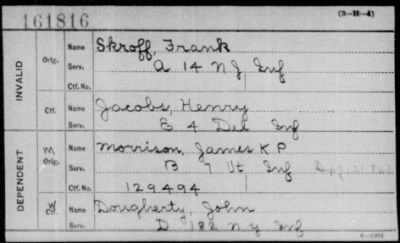 161816
(3-H-4)
INVALID
Orig.
Name Skroff, Frank
Serv. A 14 N J Inf
Ctf. No.
Ctf.
Name Jacobs, Henry
Serv. E 4 Del Inf
DEPENDENT
M Orig.
Name Morrison, James K P
Serv. B 7 Vt Inf
Ctf. No. 129494
W Ctf.
Name Dougherty, John
Serv. D 182 N Y Inf